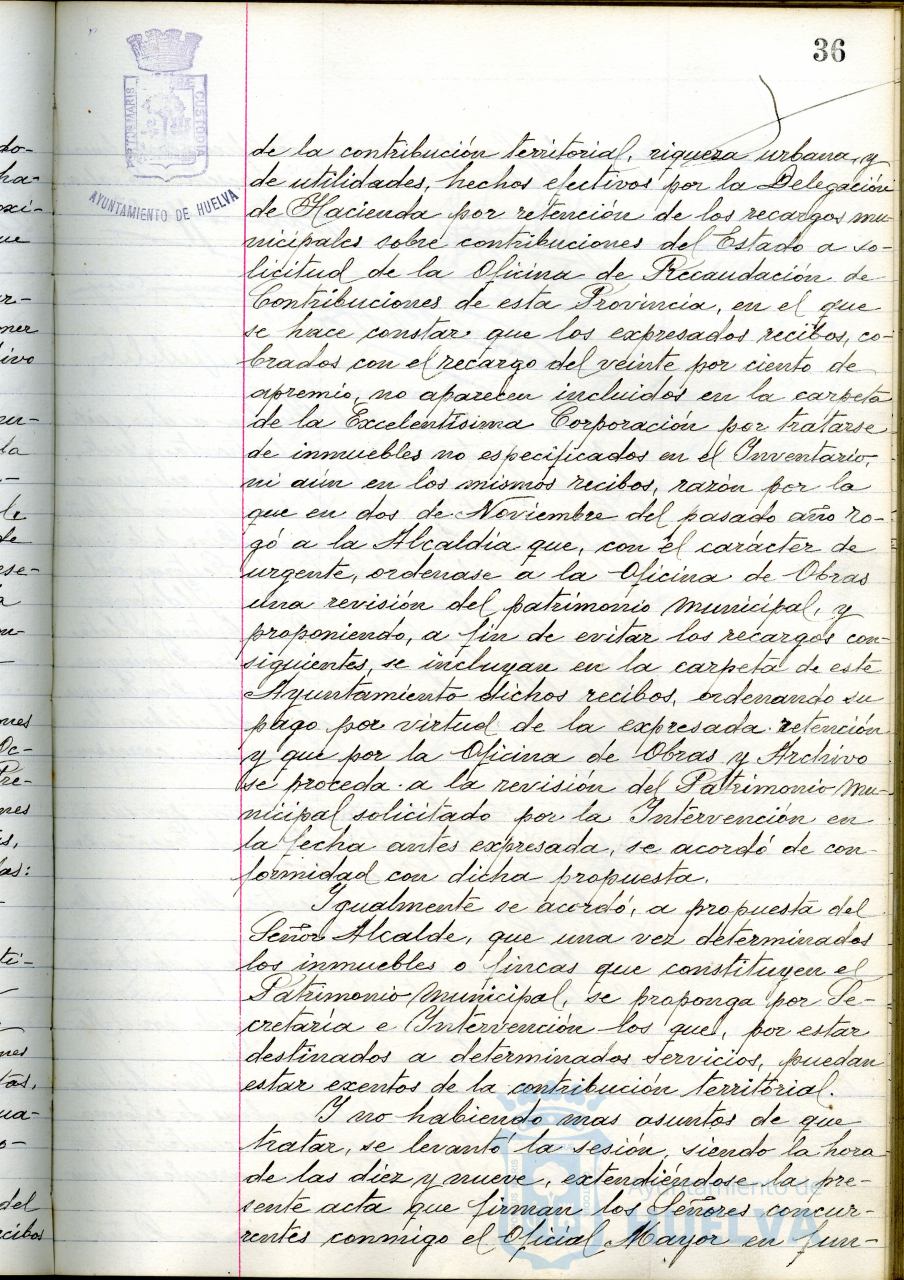 36
PORTUS MARIS CUSTODIA
AYUNTAMIENTO DE HUELVA
de la contribución territorial, riqueza urbana, y
de utilidades, hechos efectivos por la Delegación
de Hacienda por retención de los recargos mu-
nicipales sobre contribuciones del Estado a so-
licitud de la Oficina de Recaudación de
Contribuciones de esta Provincia, en el que
se hace constar que los expresados recibos, co-
brados con el recargo del veinte por ciento de
apremio, no aparecen incluidos en la carpeta
de la Excelentísima Corporación por tratarse
de inmuebles no especificados en el Inventario,
ni aún en los mismos recibos, razón por la
que en dos de Noviembre del pasado año ro-
gó a la Alcaldía que, con el carácter de
urgente, ordenase a la Oficina de Obras
una revisión del patrimonio municipal, y
proponiendo, a fin de evitar los recargos con-
siguientes, se incluyan en la carpeta de este
Ayuntamiento dichos recibos, ordenando su
pago por virtud de la expresada retención
y que por la Oficina de Obras y Archivo
se proceda a la revisión del Patrimonio Mu-
nicipal solicitado por la Intervención en
la fecha antes expresada, se acordó de con-
formidad con dicha propuesta.
Igualmente se acordó, a propuesta del
Señor Alcalde, que una vez determinados
los inmuebles o fincas que constituyen el
Patrimonio Municipal, se proponga por Se-
cretaría e Intervención los que, por estar
destinados a determinados servicios, puedan
estar exentos de la contribución territorial.
Y no habiendo mas asuntos de que
tratar, se levantó la sesión, siendo la hora
de las diez y nueve, extendiéndose la pre-
sente acta que firman los Señores concur-
rentes conmigo el Oficial Mayor en fun-
Ayuntamiento de
HUELVA